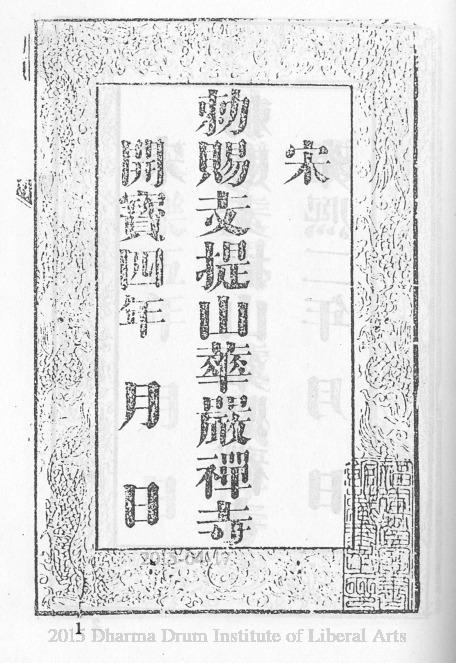 宋
勅賜支提山華嚴禪寺
開寶四年 月 日
1
2015 Dharma Drum Institute of Liberal Arts